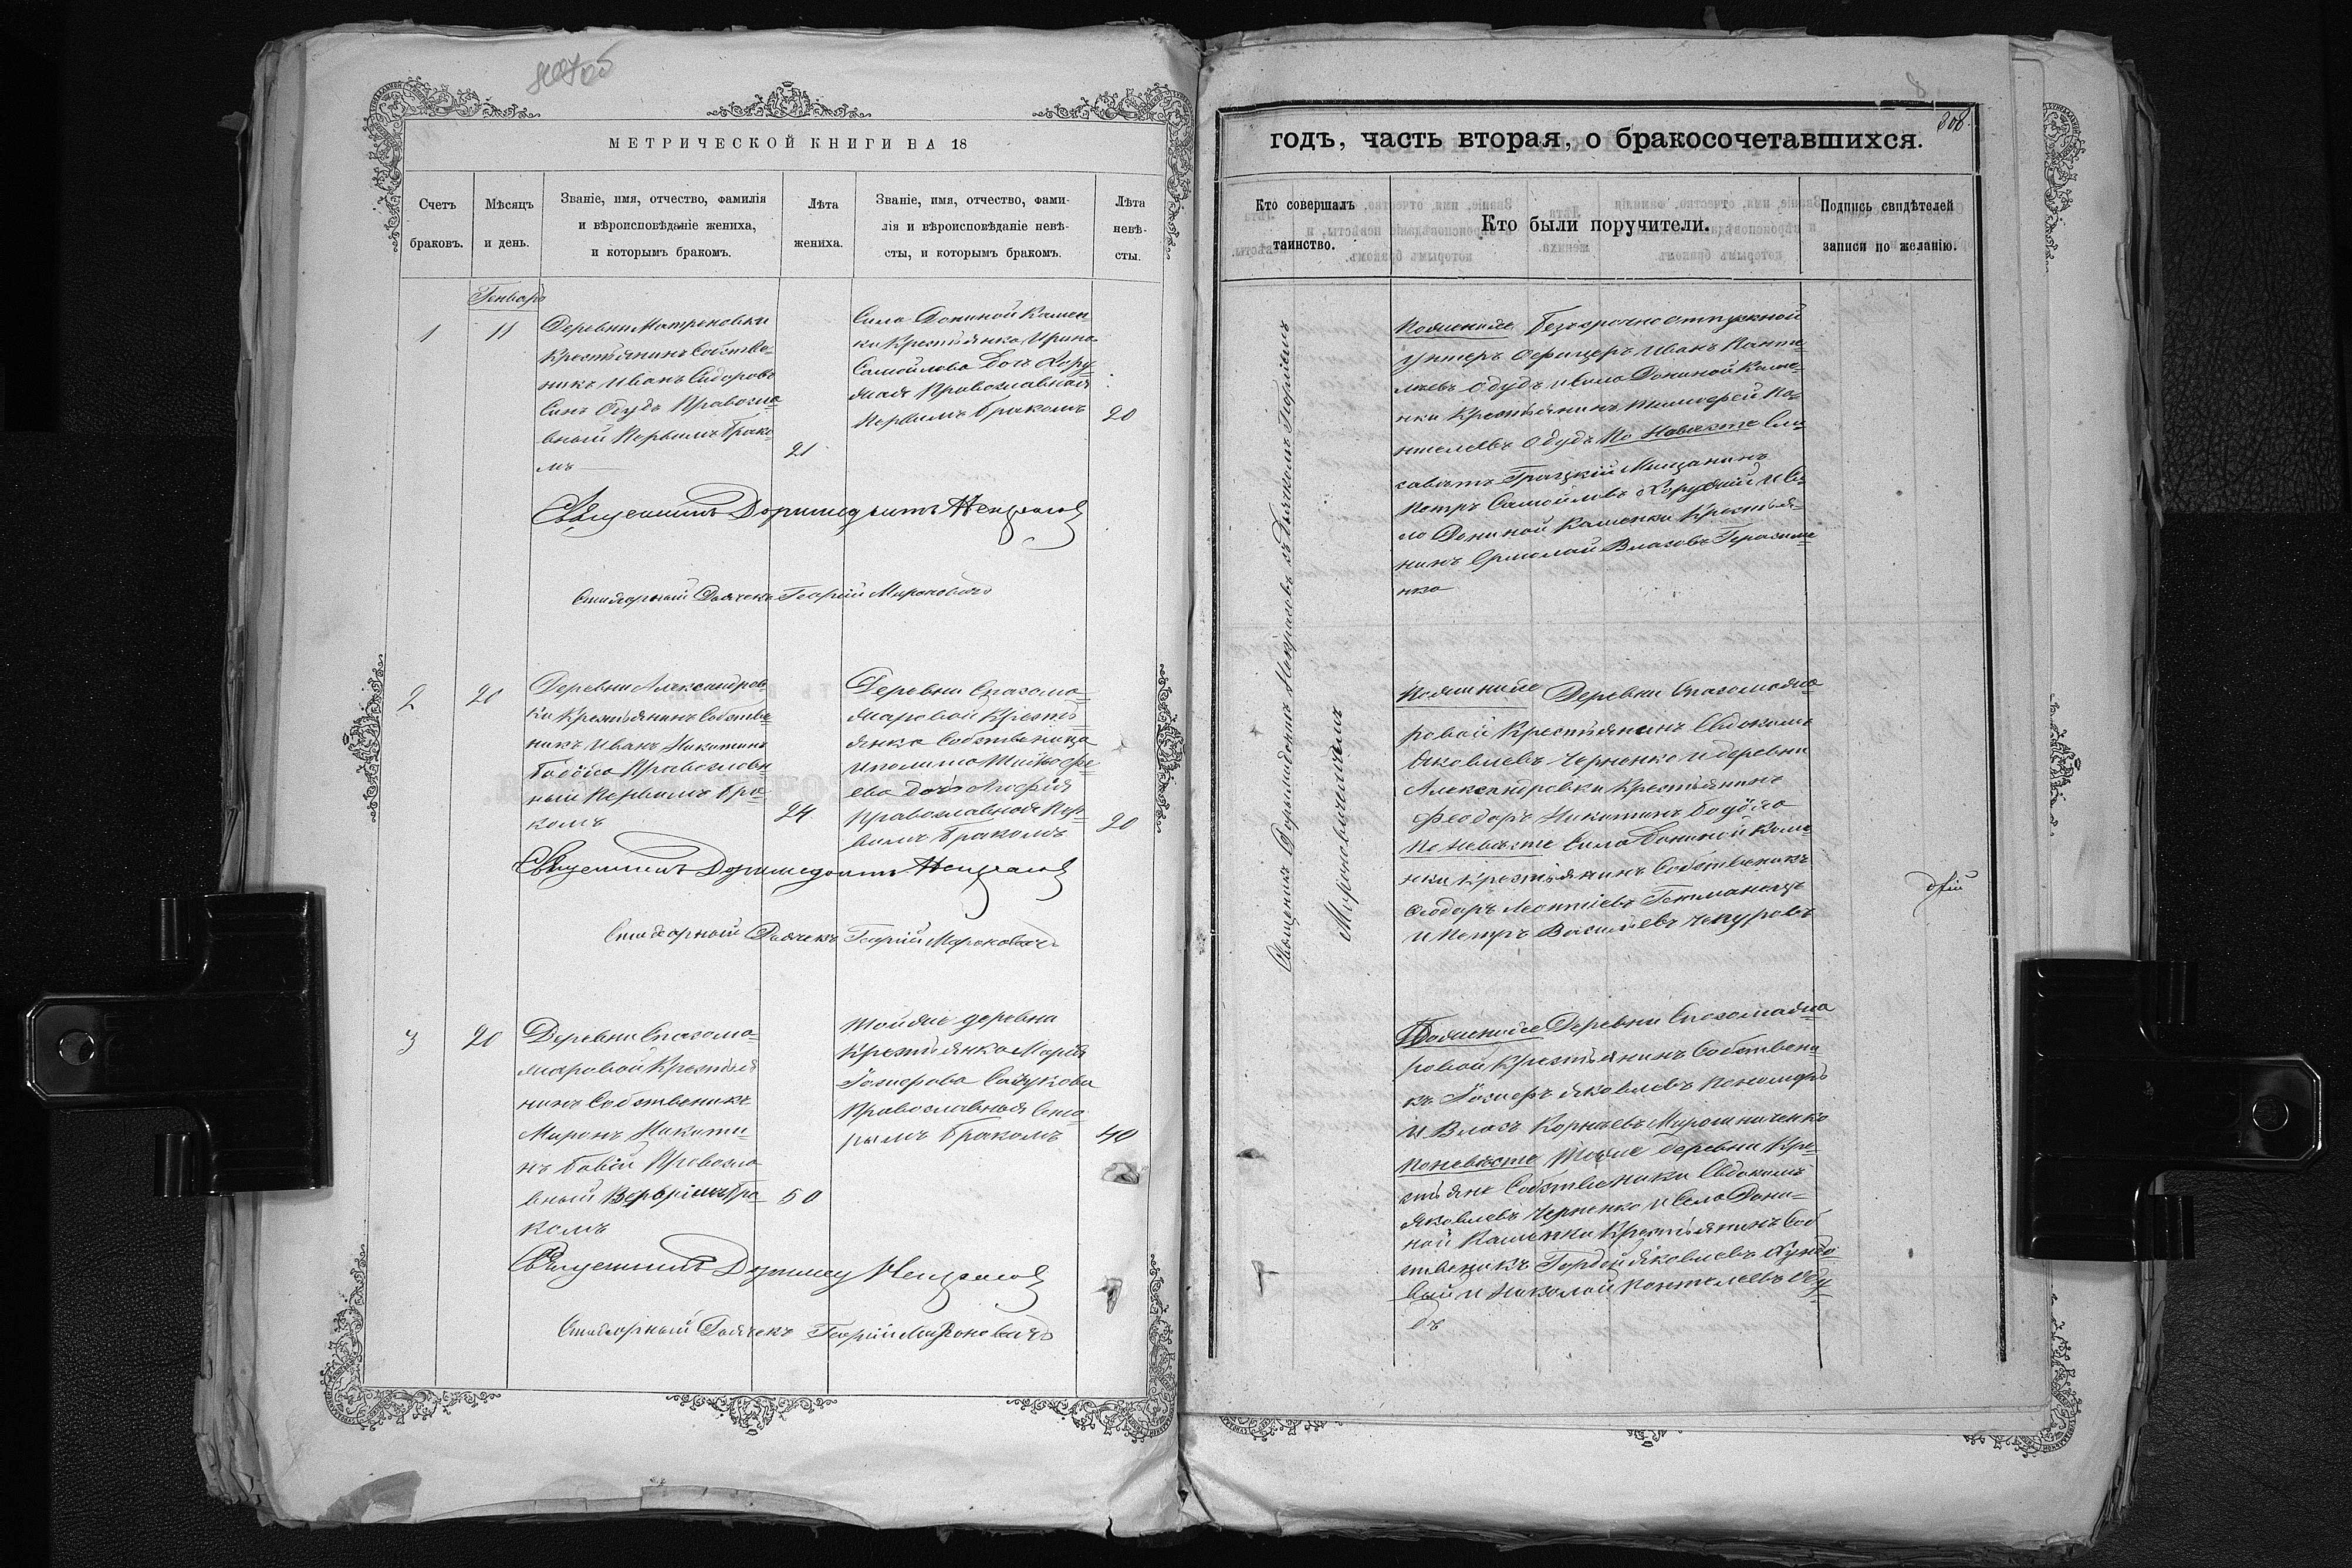 МЕТРИЧЕСКОЙ КНИГИ НА 18
Счетъ браковъ.
Мѣсяцъ и день.
Званіе, имя, отчество, фамилія
и вѣроисповѣданіе жениха,
и которымъ бракомъ.
Лѣта жениха.
Званіе, имя, отчество, фами-
лія и вѣроисповѣданіе невѣ-
сты, и которымъ бракомъ.
Лѣта невѣ-
сты.
Генварь
1
11
Деревни Матреновки
Крестьянинъ Собстве-
никъ Иванъ Сидоровъ
Сынъ Обудъ Правосла-
вный Первымъ Брако-
мъ
21
Села Дониной Камен
ки Крестьянка Ирина
Самойлова Дочь Хору-
жая Православная
Первымъ бракомъ
20
Священникъ Доримедонтъ Некрасовъ
Дьячекъ Георгій Мироновичъ
2
20
Деревни Александров
ки Крестьянинъ Собстве-
никъ Иванъ Никитинъ
Православ
ный Первымъ бра-
комъ
24
Деревни Спасома-
жаровой Кресть-
янка Собственица
дочь
Православная Пер-
вымъ бракомъ
20
Священникъ Доримедонтъ Некрасовъ
Дьячекъ Георгій Мироновичъ
3
20
Деревни Спасома-
жаровой Крестья
нинъ Собственикъ
Миронъ Никити-
нъ Бабій Правосла
вный бра-
комъ
50
Тойже деревни
Крестьянка Марія
Православная Вто
рымъ бракомъ
40
Священникъ Доримед Некрасовъ
Дьячекъ Георгій Мироновичъ
308.
годъ, часть вторая, о бракосочетавшихся.
Кто совершалъ
таинство.
Кто были поручители.
Подпись свидѣтелей
записи по желанію.
Священникъ Доримедонтъ Некрасовъ съ Дьячкомъ Георгіемъ
Мироновичемъ
По женихѣ Безсрочно отпускной
Унтеръ Офицеръ Иванъ Панте-
леевъ Обудъ и Села Дониной Каме-
нки Крестьянинъ Тимофей Па-
нтелеевъ Обудъ По Невѣстѣ Ели-
саветъ Градскій Мищанинъ
Петръ Самойловъ Хоружій и Се-
ла Дониной Каменки Крестья-
нинъ Ермолай Власовъ Герасиме
нко
По женихѣ Деревни Спасомажа-
ровой Крестьянинъ Евдокимъ
Яковлевъ Черненко и деревни
Александровки Крестьянинъ
Феодоръ Никитинъ
По невѣстѣ Села Дониной Каме-
нки Крестьянинъ Собственикъ
Феодоръ Леонтіевъ Гетманецъ
и Петръ Васильевъ Чепуровъ
По женихѣ Деревни Спасомажа
ровой Крестьянинъ Собствени-
къ Яковлевъ Пономарь
и Власъ Корнѣевъ Мирошниченко
По невѣстѣ Тойже деревни Кре-
стьяне Собственики Евдокимъ
Яковлевъ Черненко и Села Дони-
ной Каменки Крестьянинъ Соб
ственикъ Гордей Яковлевъ
и Николай Пантелеевъ Обу-
дъ